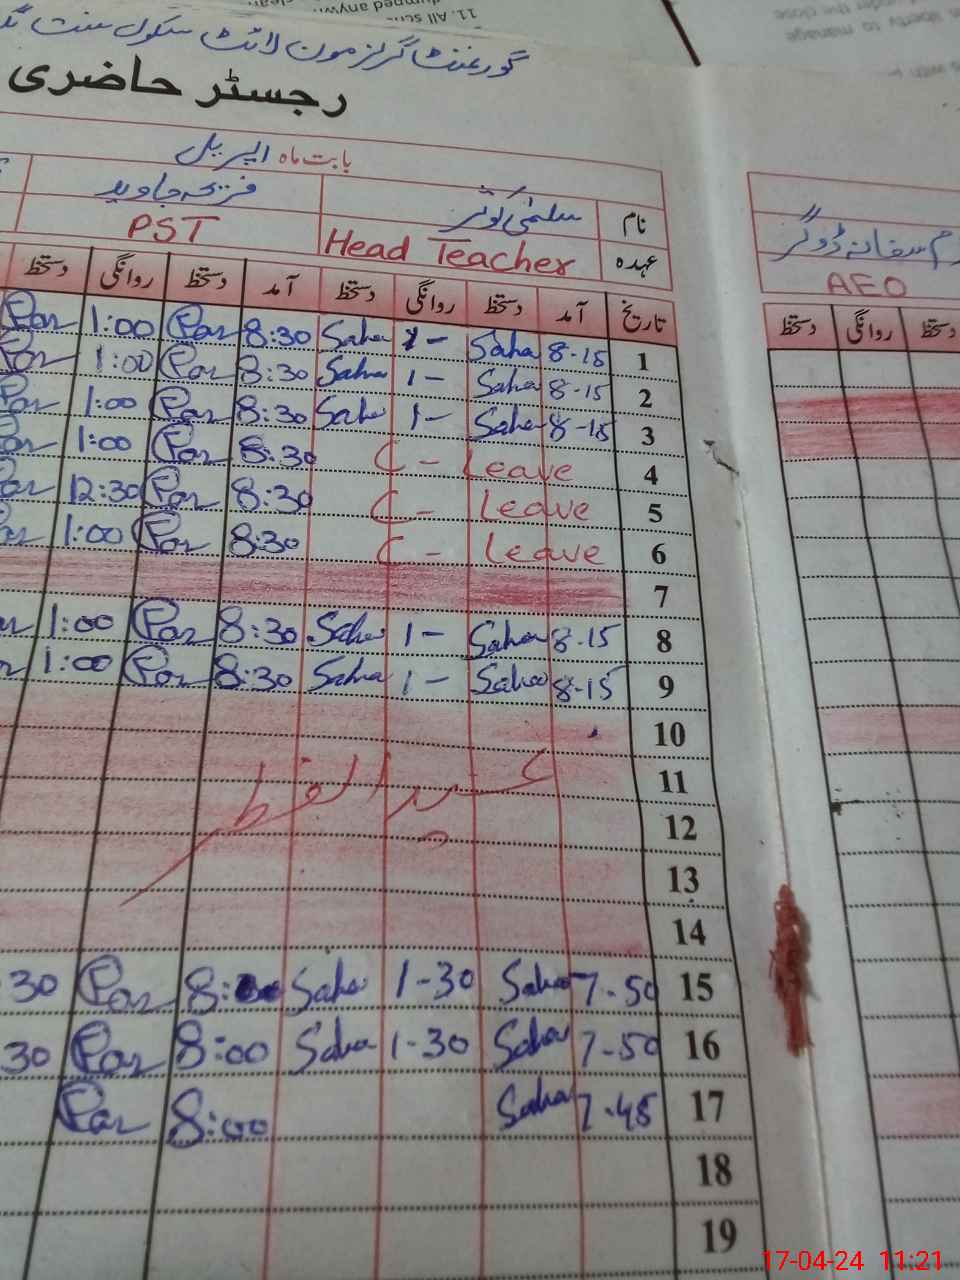 11. All
گورنمنٹ گرلز مون لائٹ سکول سنت
رجسٹر حاضری
بابت ماہ اپریل
نام سلمیٰ کوثر فریحہ جاوید
عہدہ Head Teacher PST
AEO
تاریخ آمد دستخط روانگی دستخط آمد دستخط روانگی دستخط
دستخط روانگی دستخط
1 8-15 Saha 1- Saha 8:30 Par 1:00 Par
2 8-15 Saha 1- Saha 8:30 Par 1:00 Par
3 8-15 Saha 1- Saha 8:30 Par 1:00 Par
4 C - Leave 8:30 Par 1:00 Par
5 C - Leave 8:30 Par 12:30 Par
6 C - Leave 8:30 Par 1:00 Par
7
8 8-15 Saha 1- Saha 8:30 Par 1:00
9 8-15 Saha 1- Saha 8:30 Par 1:00
10
11
عید الفطر
12
13
14
15 7-50 Saha 1-30 Saha 8:00 Par 30
16 7-50 Saha 1-30 Saha 8:00 Par 30
17 7-45 Saha 8:00 Par
18
19
17-04-24 11:21